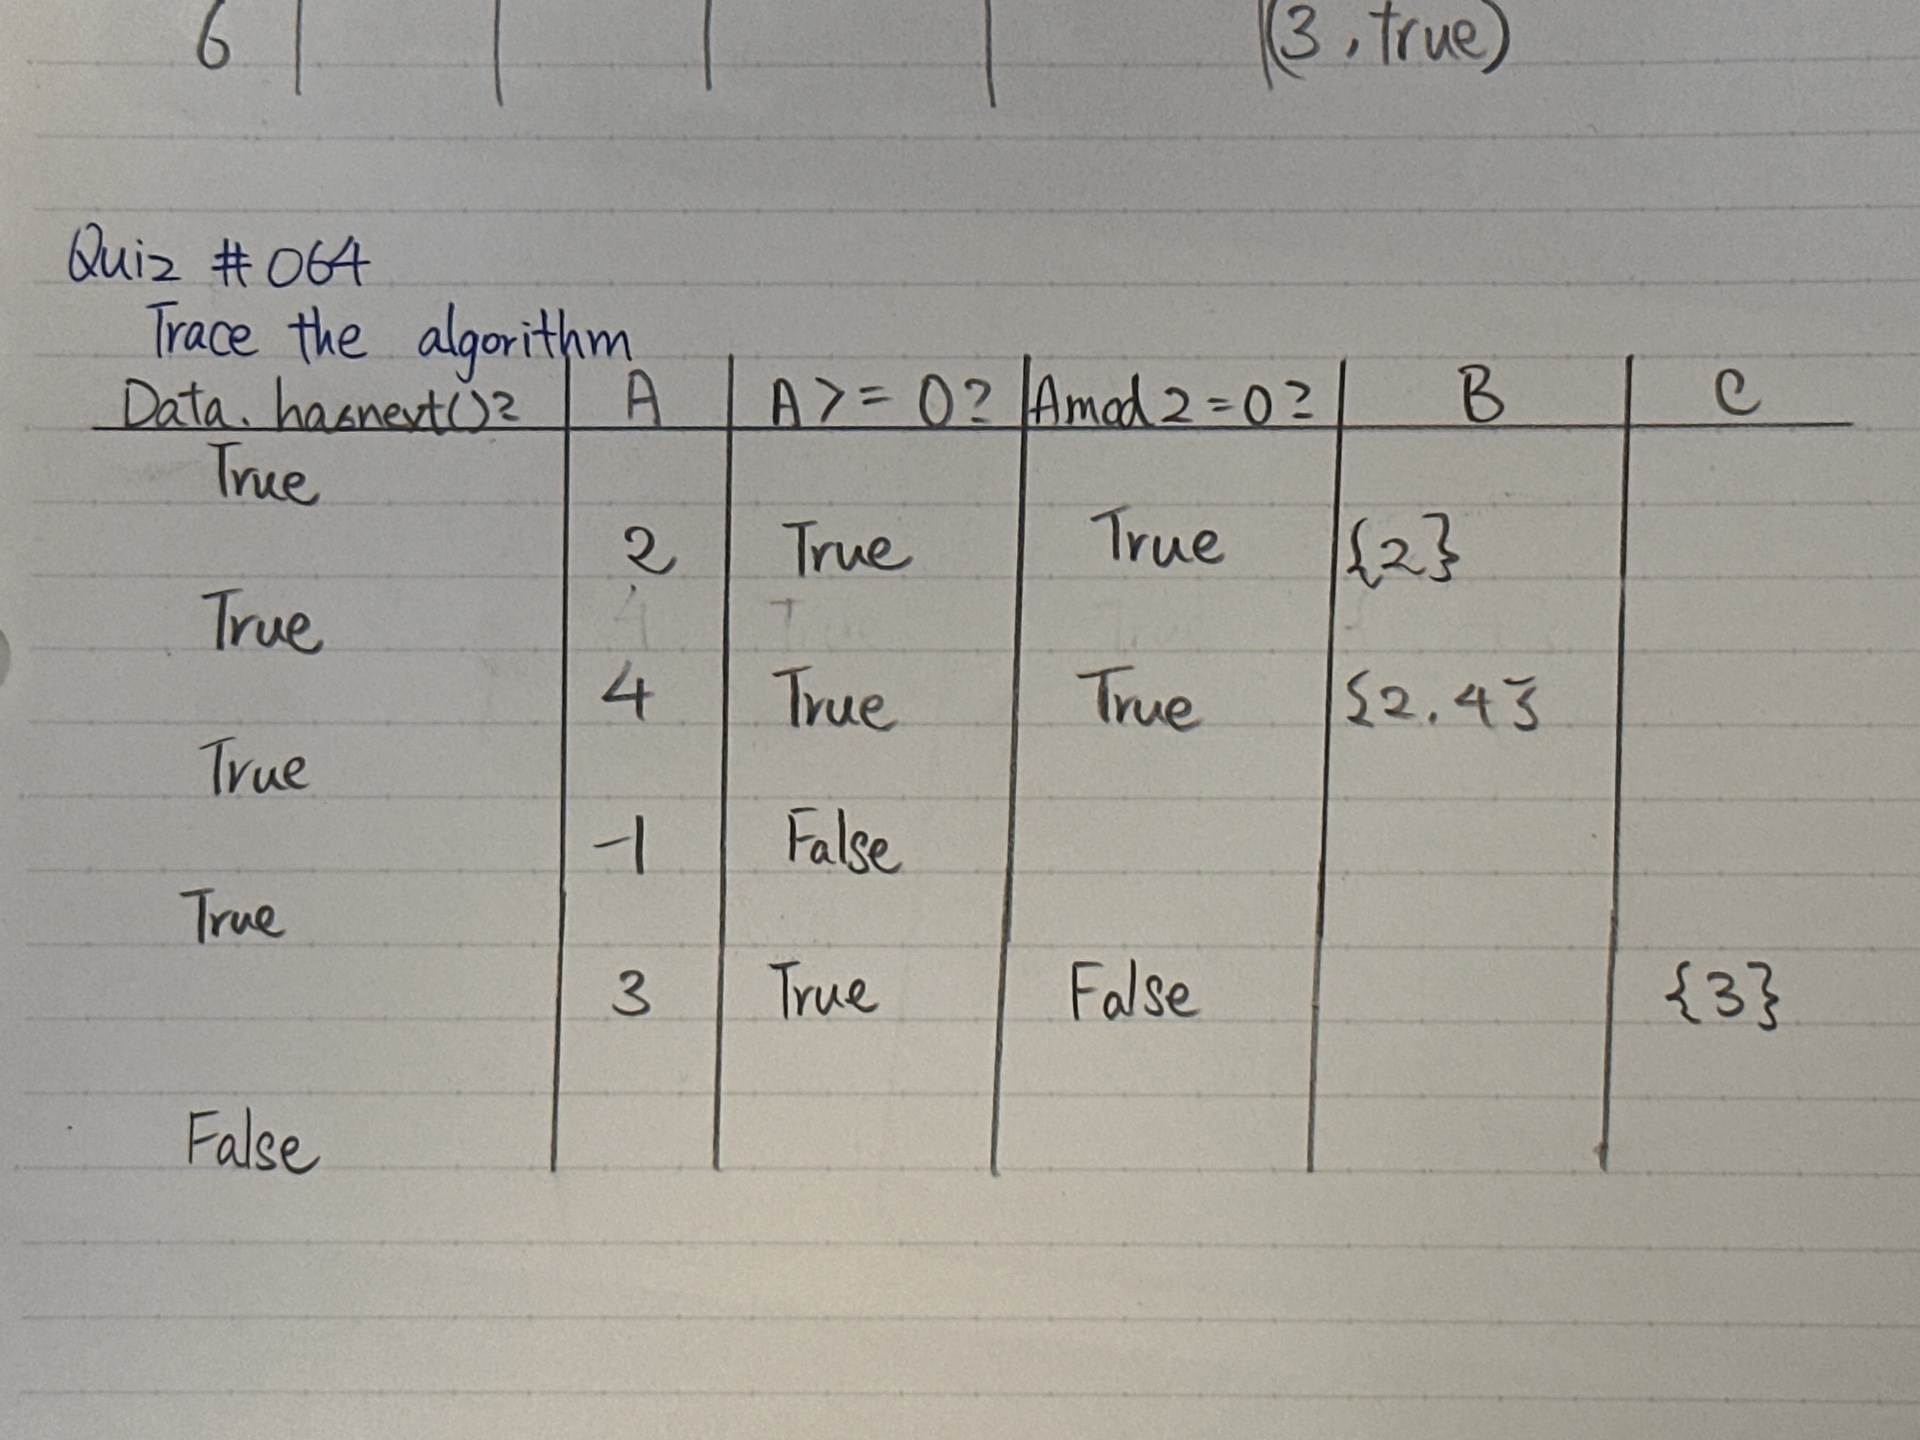 6 (3, true)
Quiz #064
Trace the algorithm
Data.hasnext()? A A>=0? Amod2=0? B C
True
2 True True {2}
True
4 True True {2.4}
True
-1 False
True
3 True False {3}
False